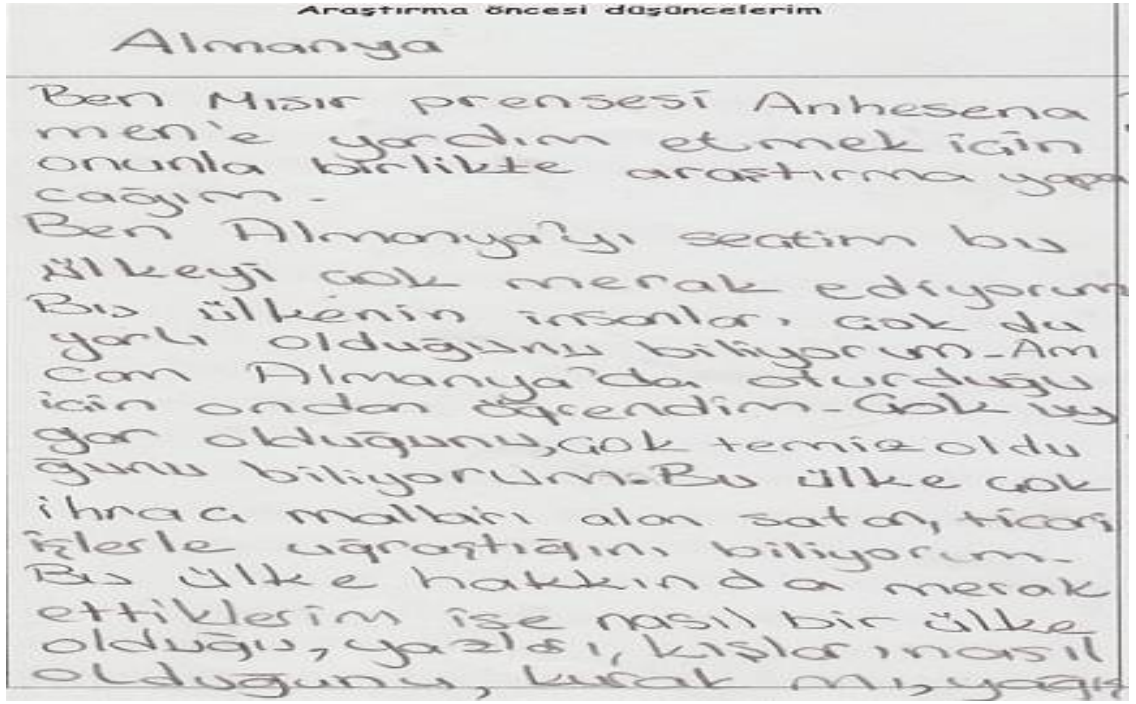 Araştırma öncesi düşüncelerim
Almanya
Ben Mısır prensesi Anhesena
men'e yardım etmek için
onunla birlikte araştırma yapa
cağım.
Ben Almanya'yı seçtim bu
ülkeyi çok merak ediyorum
Bu ülkenin insanları çok du
yarlı olduğunu biliyorum. Am
cam Almanya'da oturduğu
için ondan öğrendim. Çok uy
gar olduğunu, çok temiz oldu
ğunu biliyorum. Bu ülke çok
ihracı malları alan satan, ticari
işlerle uğraştığını biliyorum.
Bu ülke hakkında merak
ettiklerim ise nasıl bir ülke
olduğu, yazları, kışları nasıl
olduğunu, kurak mı, yağış